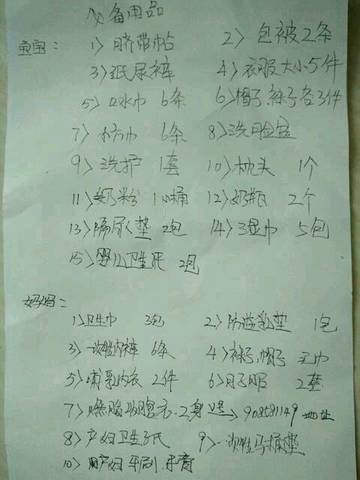 必备用品
宝宝： 1〉脐带帖 2〉包被2条
3〉纸尿裤 4〉衣服大小5件
5〉口水巾 6条 6〉帽子，袜子各3件
7〉方巾 6条 8〉洗
9〉洗护 1套 10〉枕头 1个
11〉奶粉 1小桶 12〉奶瓶 2个
13〉隔尿垫 2包 14〉湿巾 5包
15〉婴儿卫生纸 2包
妈妈：
1〉卫生巾 3包 2〉防溢乳垫 1包
3〉一次性内裤 6条 4〉袜子，帽子 头巾
5〉哺乳内衣 2件 6〉月子服 2套
7〉
8〉产妇卫生纸 9〉一次性马桶垫
10〉产妇牙刷，牙膏